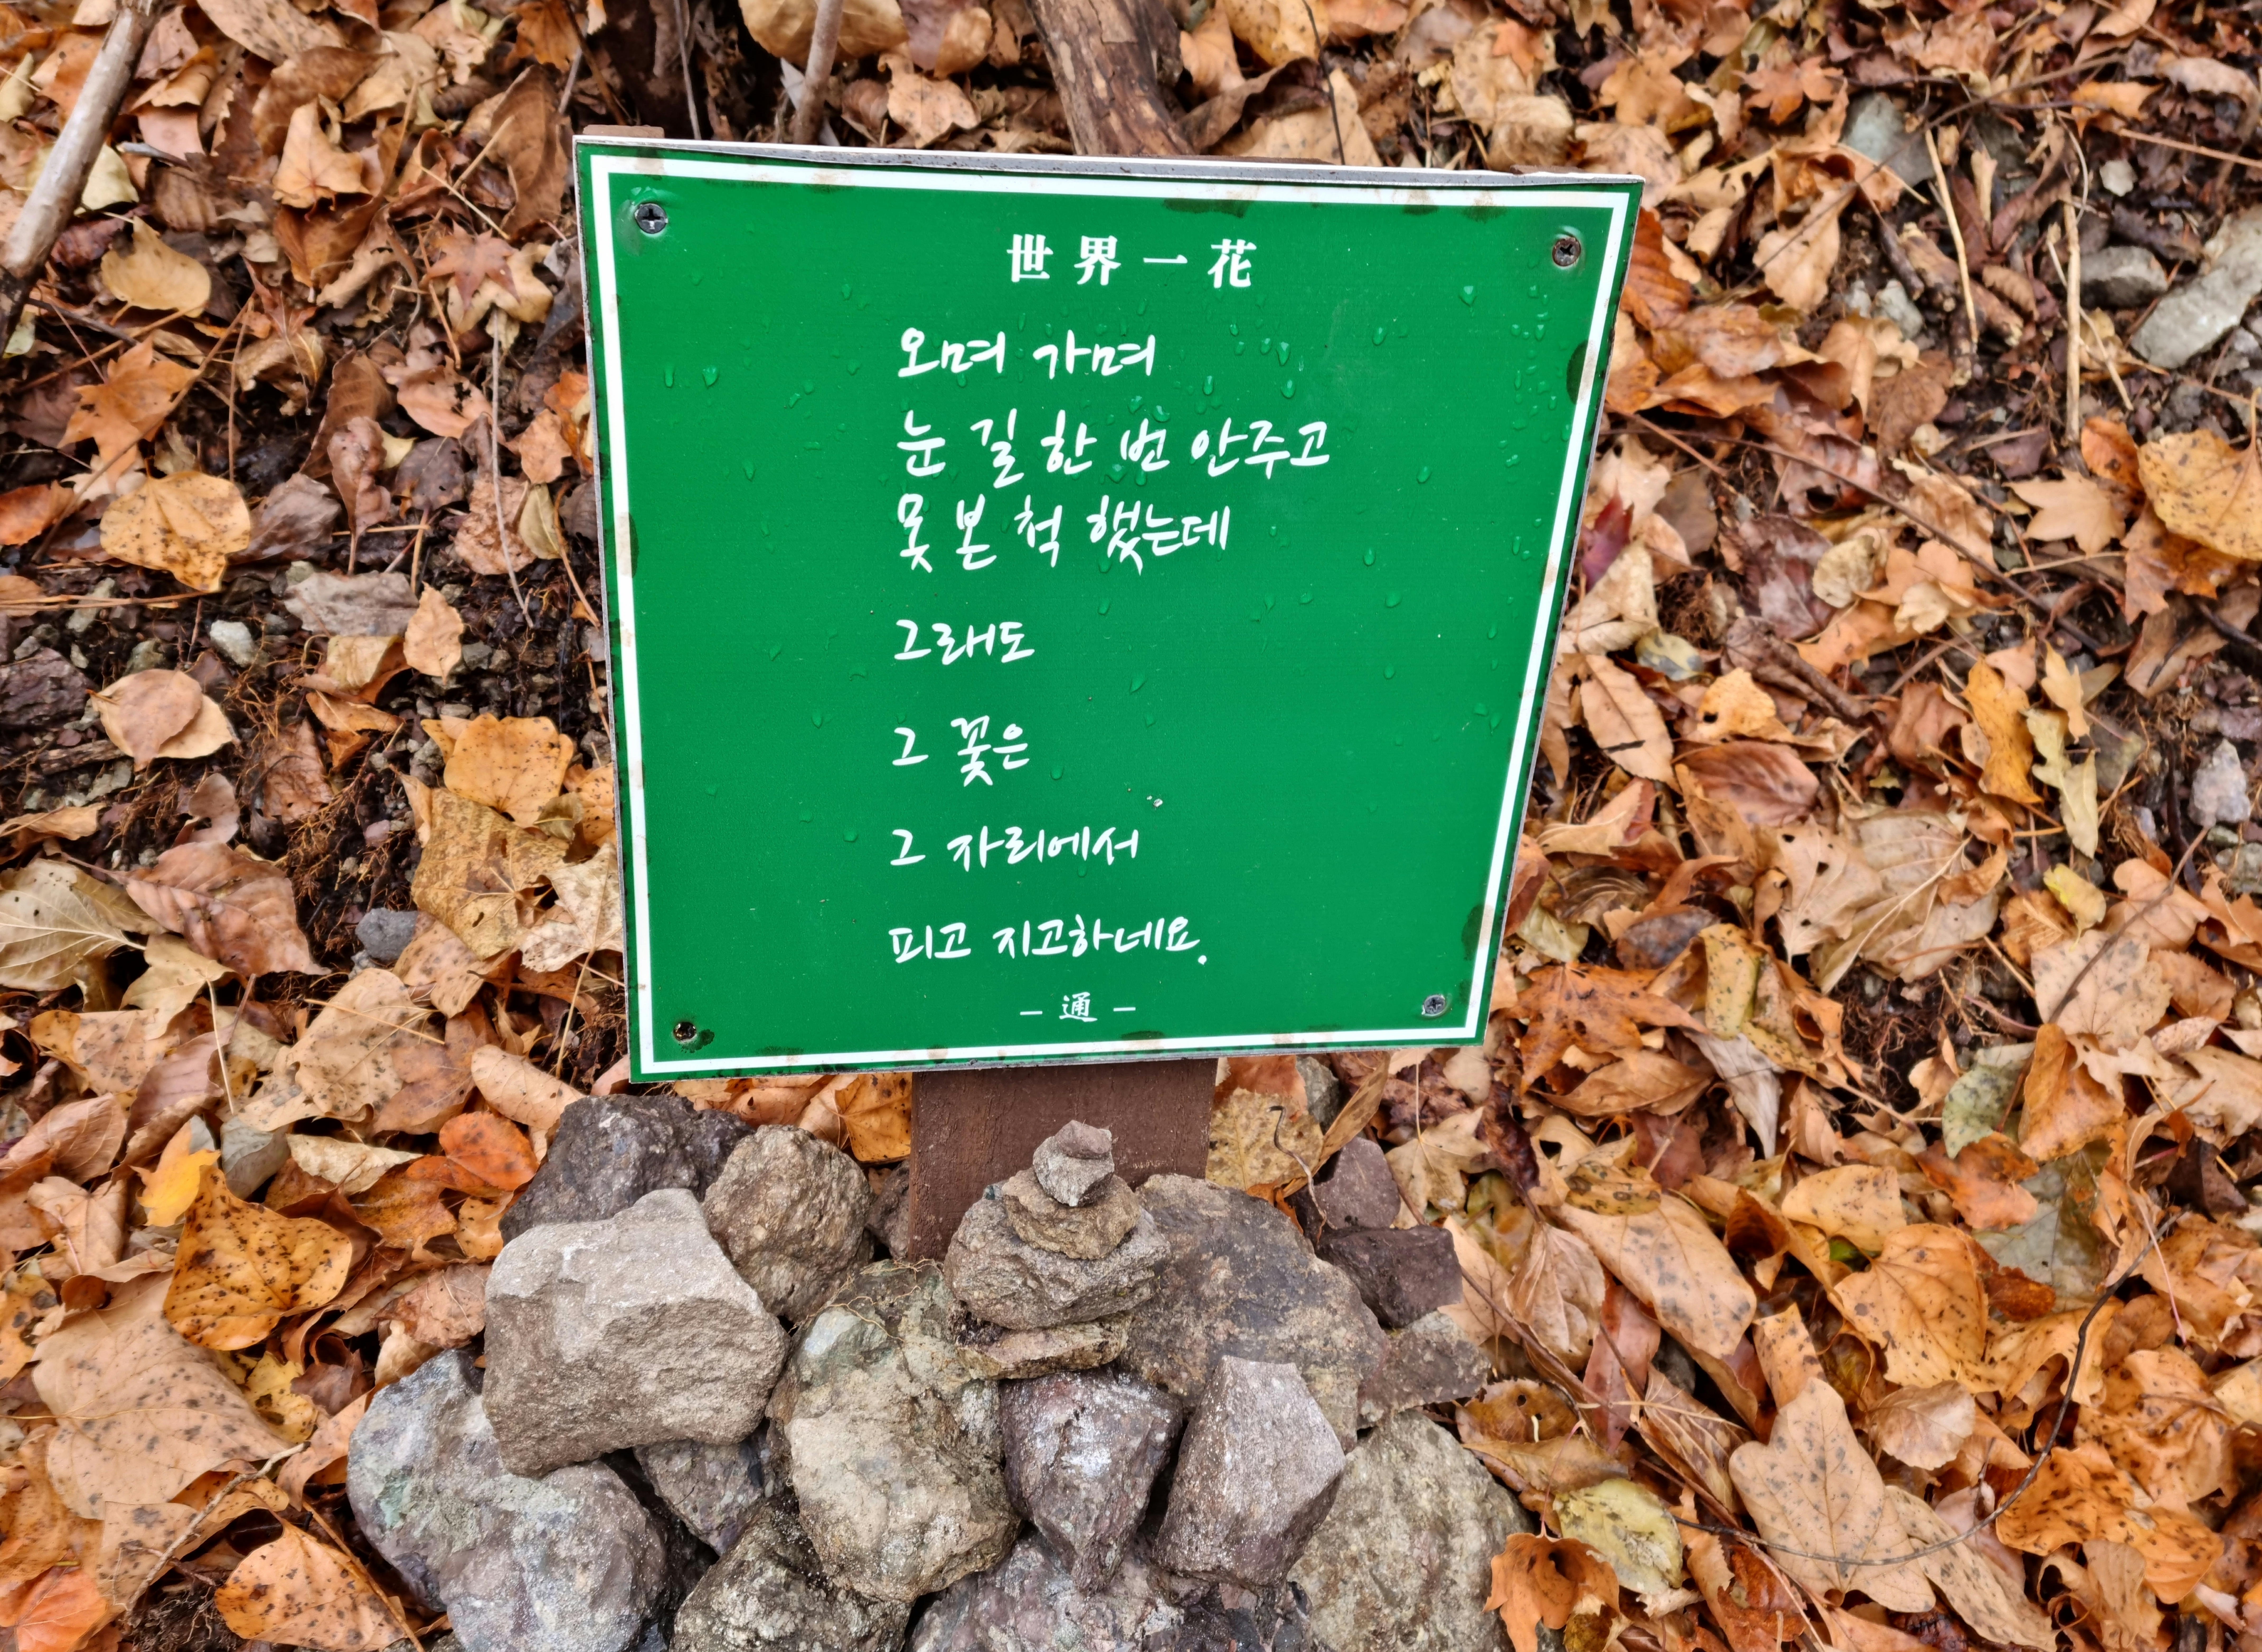 世界一花
오며 가며
눈길 한 번 안주고
못 본 척 했는데
그래도
그 꽃은
그 자리에서
피고 지고하네요.
- 通 -